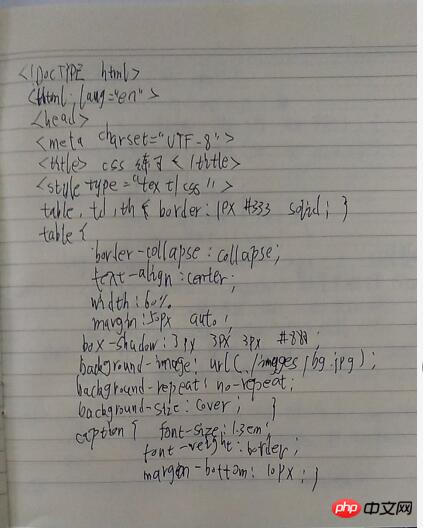 <!DOCTYPE html>
<html lang="en">
<head>
<meta charset="UTF-8">
<title> css 练习 </title>
<style type="text/css">
table, td, th { border: 1px #333 solid; }
table {
border-collapse: collapse;
text-align: center;
width: 60%
margin: 50px auto;
box-shadow: 3px 3px 3px #888;
background-image: url(./images/bg.jpg);
background-repeat: no-repeat;
background-size: cover; }
caption { font-size: 1.3em;
font-weight: border;
margin-bottom: 10px; }
php 中文网